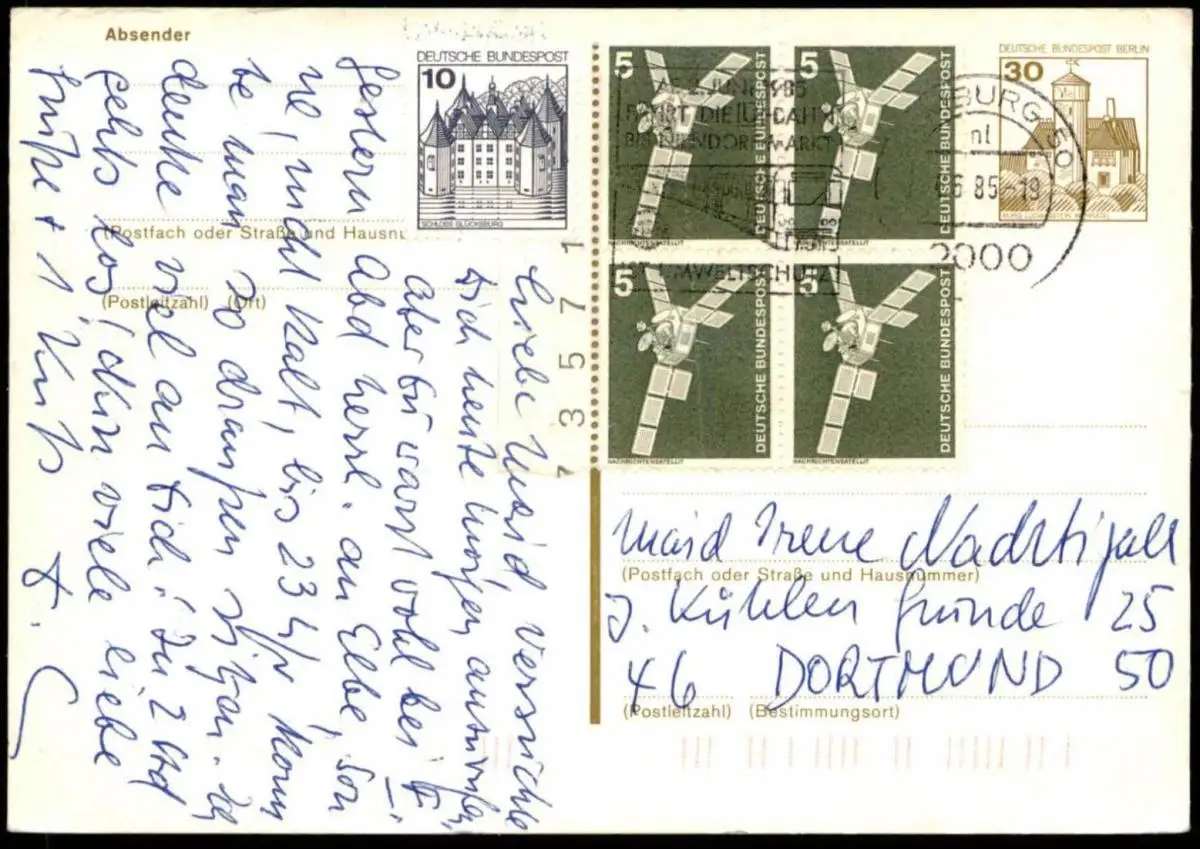 Absender
(Postfach oder Straße und Hausnu
(Postleitzahl) (Ort)
DEUTSCHE BUNDESPOST
10
SCHLOSS GLÜCKSBURG
5
DEUTSCHE BUNDESPOST
NACHRICHTENSATELLIT
5
DEUTSCHE BUNDESPOST
NACHRICHTENSATELLIT
5
DEUTSCHE BUNDESPOST
NACHRICHTENSATELLIT
5
DEUTSCHE BUNDESPOST
NACHRICHTENSATELLIT
DEUTSCHE BUNDESPOST BERLIN
30
JUNI 1985
FÄHRT DIE U-BAHN
BIS NIENDORF MARKT
IST UMWELTSCHUTZ
BURG 50
nl
6 85-19
2000
1
7
5
3
Liebe Maid versuchte
Dich heute morgen anzurufen,
aber Du warst wohl bei F
Gestern Abd herrl. an Elbe, Son
ne, nicht kalt, bis 23 Uhr konn
te man so draußen sitzen. Ich
denke viel an Dich! In 2 Std
gehts los, Dkm viele liebe
Grüße + 1 Kuß
Maid Irene Nachtigall
(Postfach oder Straße und Hausnummer)
J. Kühlen Grunde 25
46 DORTMUND 50
(Postleitzahl) (Bestimmungsort)